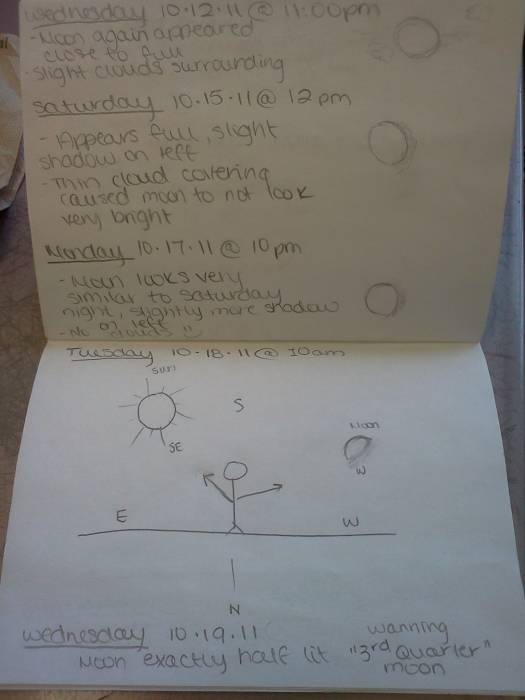 Wednesday 10.12.11 @ 11:00pm
- Moon again appeared
close to full
- slight clouds surrounding
Saturday 10.15.11 @ 12pm
- Appears full, slight
shadow on left
- Thin cloud covering
caused moon to not look
very bright
Monday 10.17.11 @ 10pm
- Moon looks very
similar to saturday
night, slightly more shadow
on left
- No clouds :)
Tuesday 10.18.11 @ 10am
sun
S
Moon
SE
W
E
W
N
Wednesday 10.19.11
Moon exactly half lit
wanning
"3rd Quarter"
moon